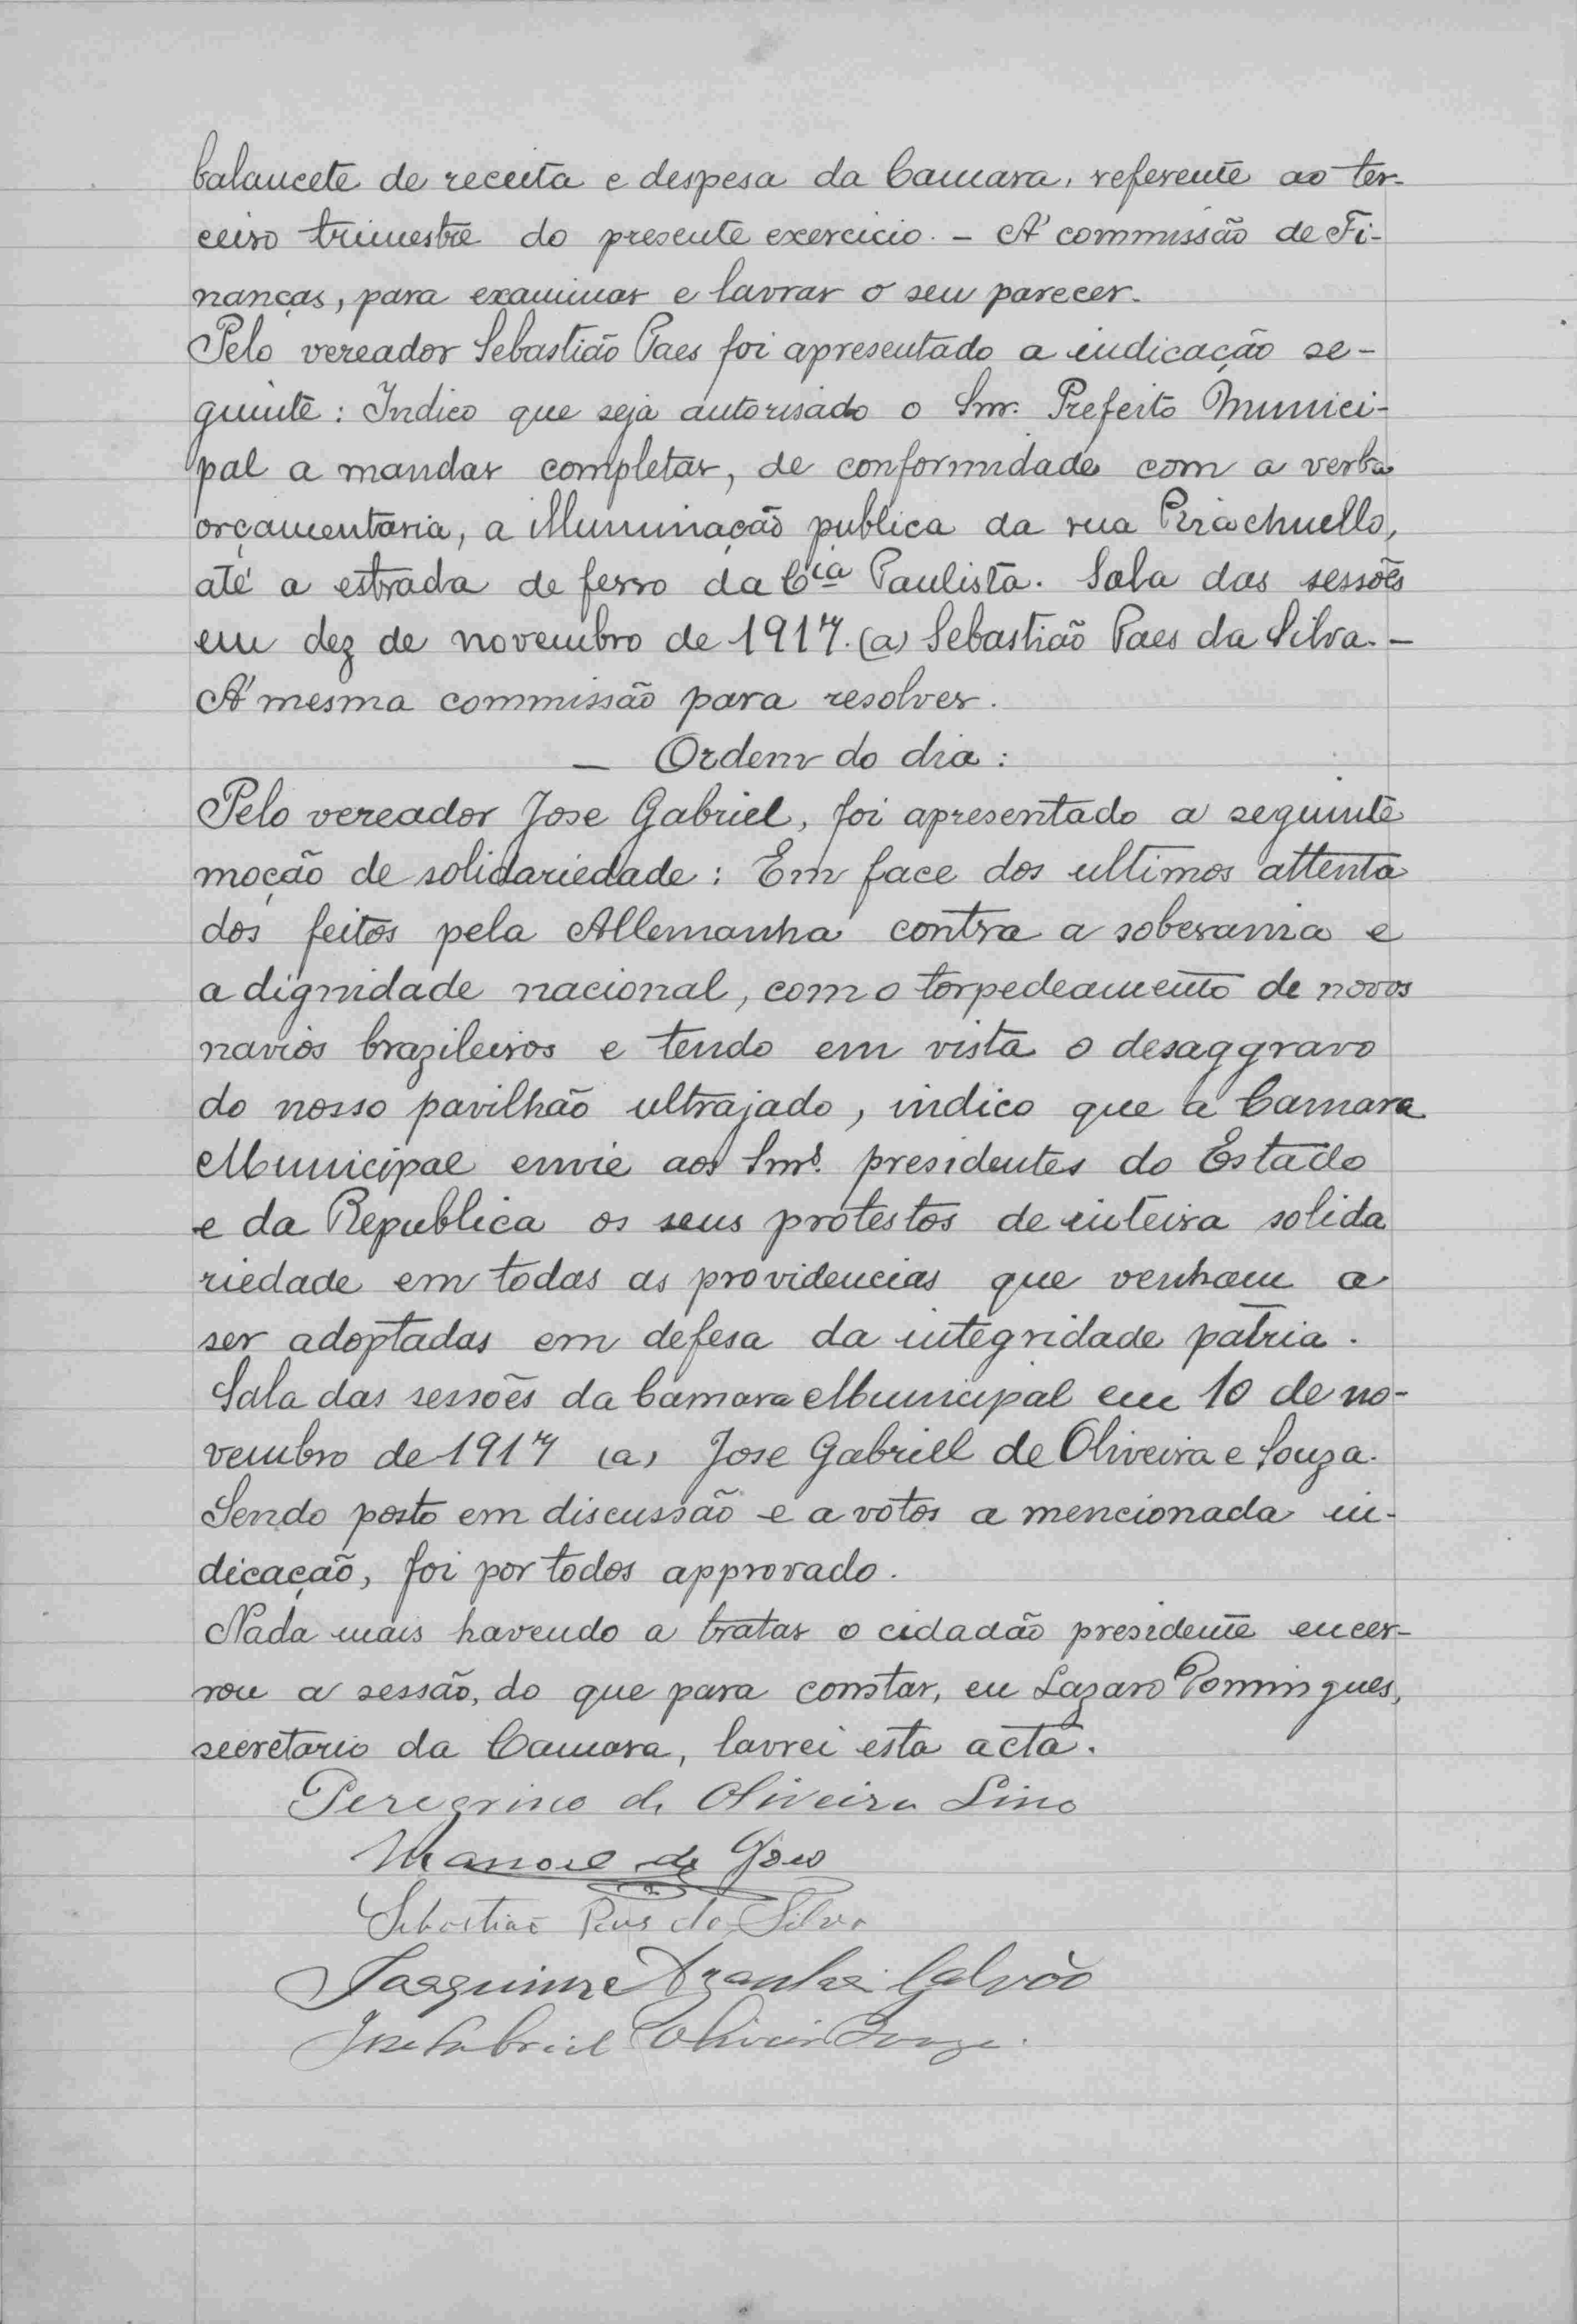 balancete de receita e despesa da Camara, referente ao ter-
ceiro trimestre do presente exercicio. – A' commissão de Fi-
nanças, para examinar e lavrar o seu parecer.
Pelo vereador Sebastião Paes foi apresentado a indicação se-
guinte: Indico que seja autorisado o Snr. Prefeito Munici-
pal a mandar completar, de conformidade com a verba
orçamentaria, a illuminação publica da rua Riachuello,
até a estrada de ferro da Cia Paulista. Sala das sessões
em dez de novembro de 1917. (a) Sebastião Paes da Silva. –
A' mesma commissão para resolver.
– Ordem do dia:
Pelo vereador Jose Gabriel, foi apresentado a seguinte
moção de solidariedade: Em face dos ultimos attenta
dos feitos pela Allemanha contra a soberania e
a dignidade nacional, com o torpedeamento de novos
navios brazileiros e tendo em vista o desaggravo
do nosso pavilhão ultrajado, indico que a Camara
Municipal envie aos Snrs. presidentes do Estado
e da Republica os seus protestos de inteira solida
riedade em todas as providencias que venham a
ser adoptadas em defesa da integridade patria.
Sala das sessões da Camara Municipal em 10 de no-
vembro de 1917 (a) Jose Gabriel de Oliveira e Souza.
Sendo posto em discussão e a votos a mencionada in-
dicação, foi por todos approvado.
Nada mais havendo a tratar o cidadão presidente encer-
rou a sessão, do que para constar, eu Lazaro Domingues,
secretario da Camara, lavrei esta acta.
Peregrino de Oliveira Lino
Manoel de Góes
Sebastião Paes da Silva
Joaquim Aranha Galvão
Jose Gabriel Oliveira Souza.